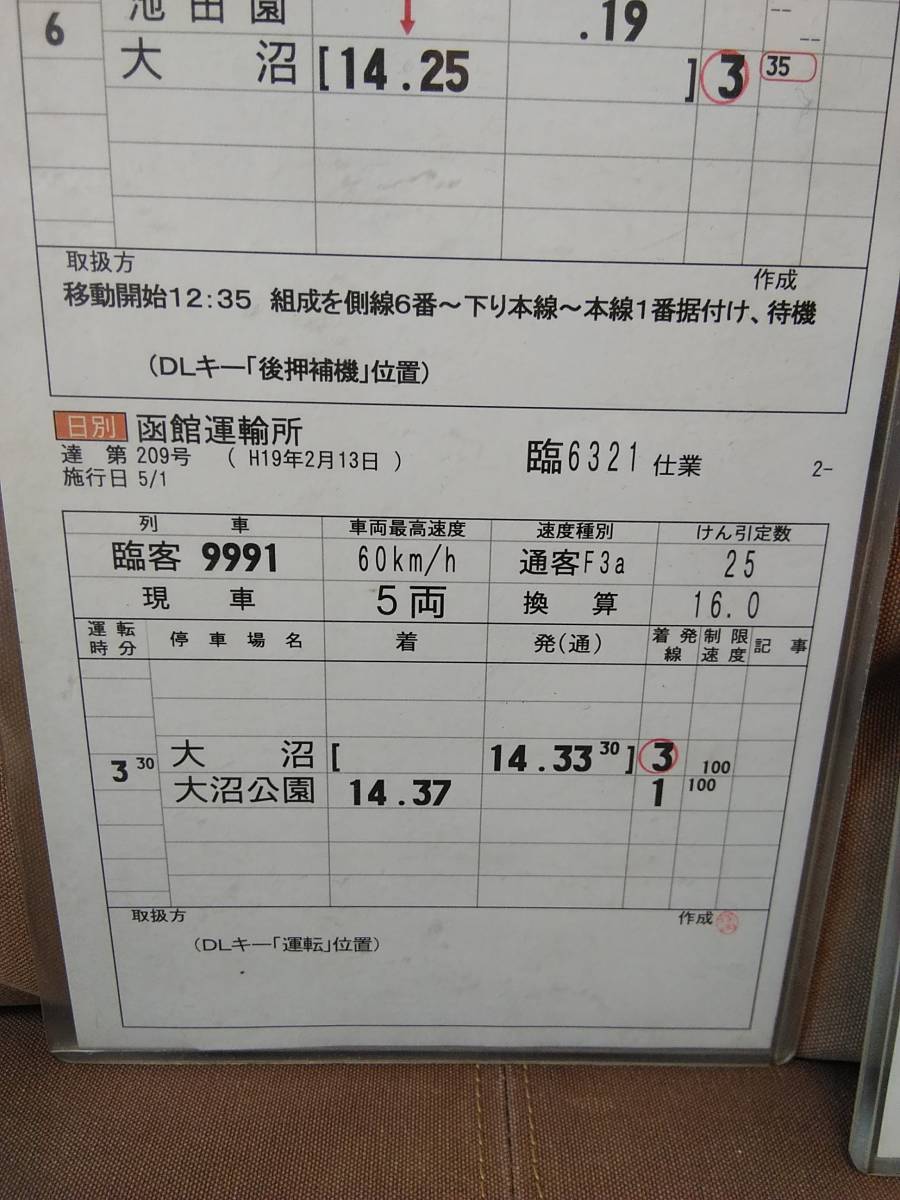 池田園 .19 --
6 --
大沼 [14.25 ] 3 35
取扱方 作成
移動開始12:35 組成を側線6番～下り本線～本線1番据付け、待機
(DLキー「後押補機」位置)
日別 函館運輸所
達 第 209号 ( H19年2月13日 ) 臨6321 仕業 2-
施行日 5/1
列車 車両最高速度 速度種別 けん引定数
臨客 9991 60km/h 通客F3a 25
現車 5両 換算 16.0
運転時分 停車場名 着 発(通) 着発線 制限速度 記事
大沼 [ 14.33 30 ] 3 100
3 30
大沼公園 14.37 1 100
取扱方 作成
(DLキー「運転」位置)